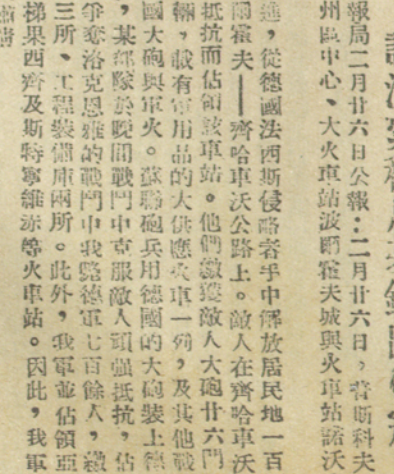 報局二月廿六日公報：二月廿六日，普斯科夫
州區中心、大火車站波爾霍夫城與火車站諾沃
進，從德國法西斯侵略者手中解放居民地一百
爾霍夫——齊哈車沃公路上。敵人在齊哈車沃
抵抗而佔領該車站。他們繳獲敵人大砲廿六門
輛，載有軍用品的大供應火車一列，及其他戰
國大砲與軍火。蘇聯砲兵用德國的大砲裝上德
，某部隊於晚間戰鬥中克服敵人頑强抵抗，佔
爭奪洛克恩雅的戰鬥中我斃德軍七百餘人，繳
三所、工程裝備庫兩所。此外，我軍並佔領亞
梯果西齊及斯特寧維赤等火車站。因此，我軍